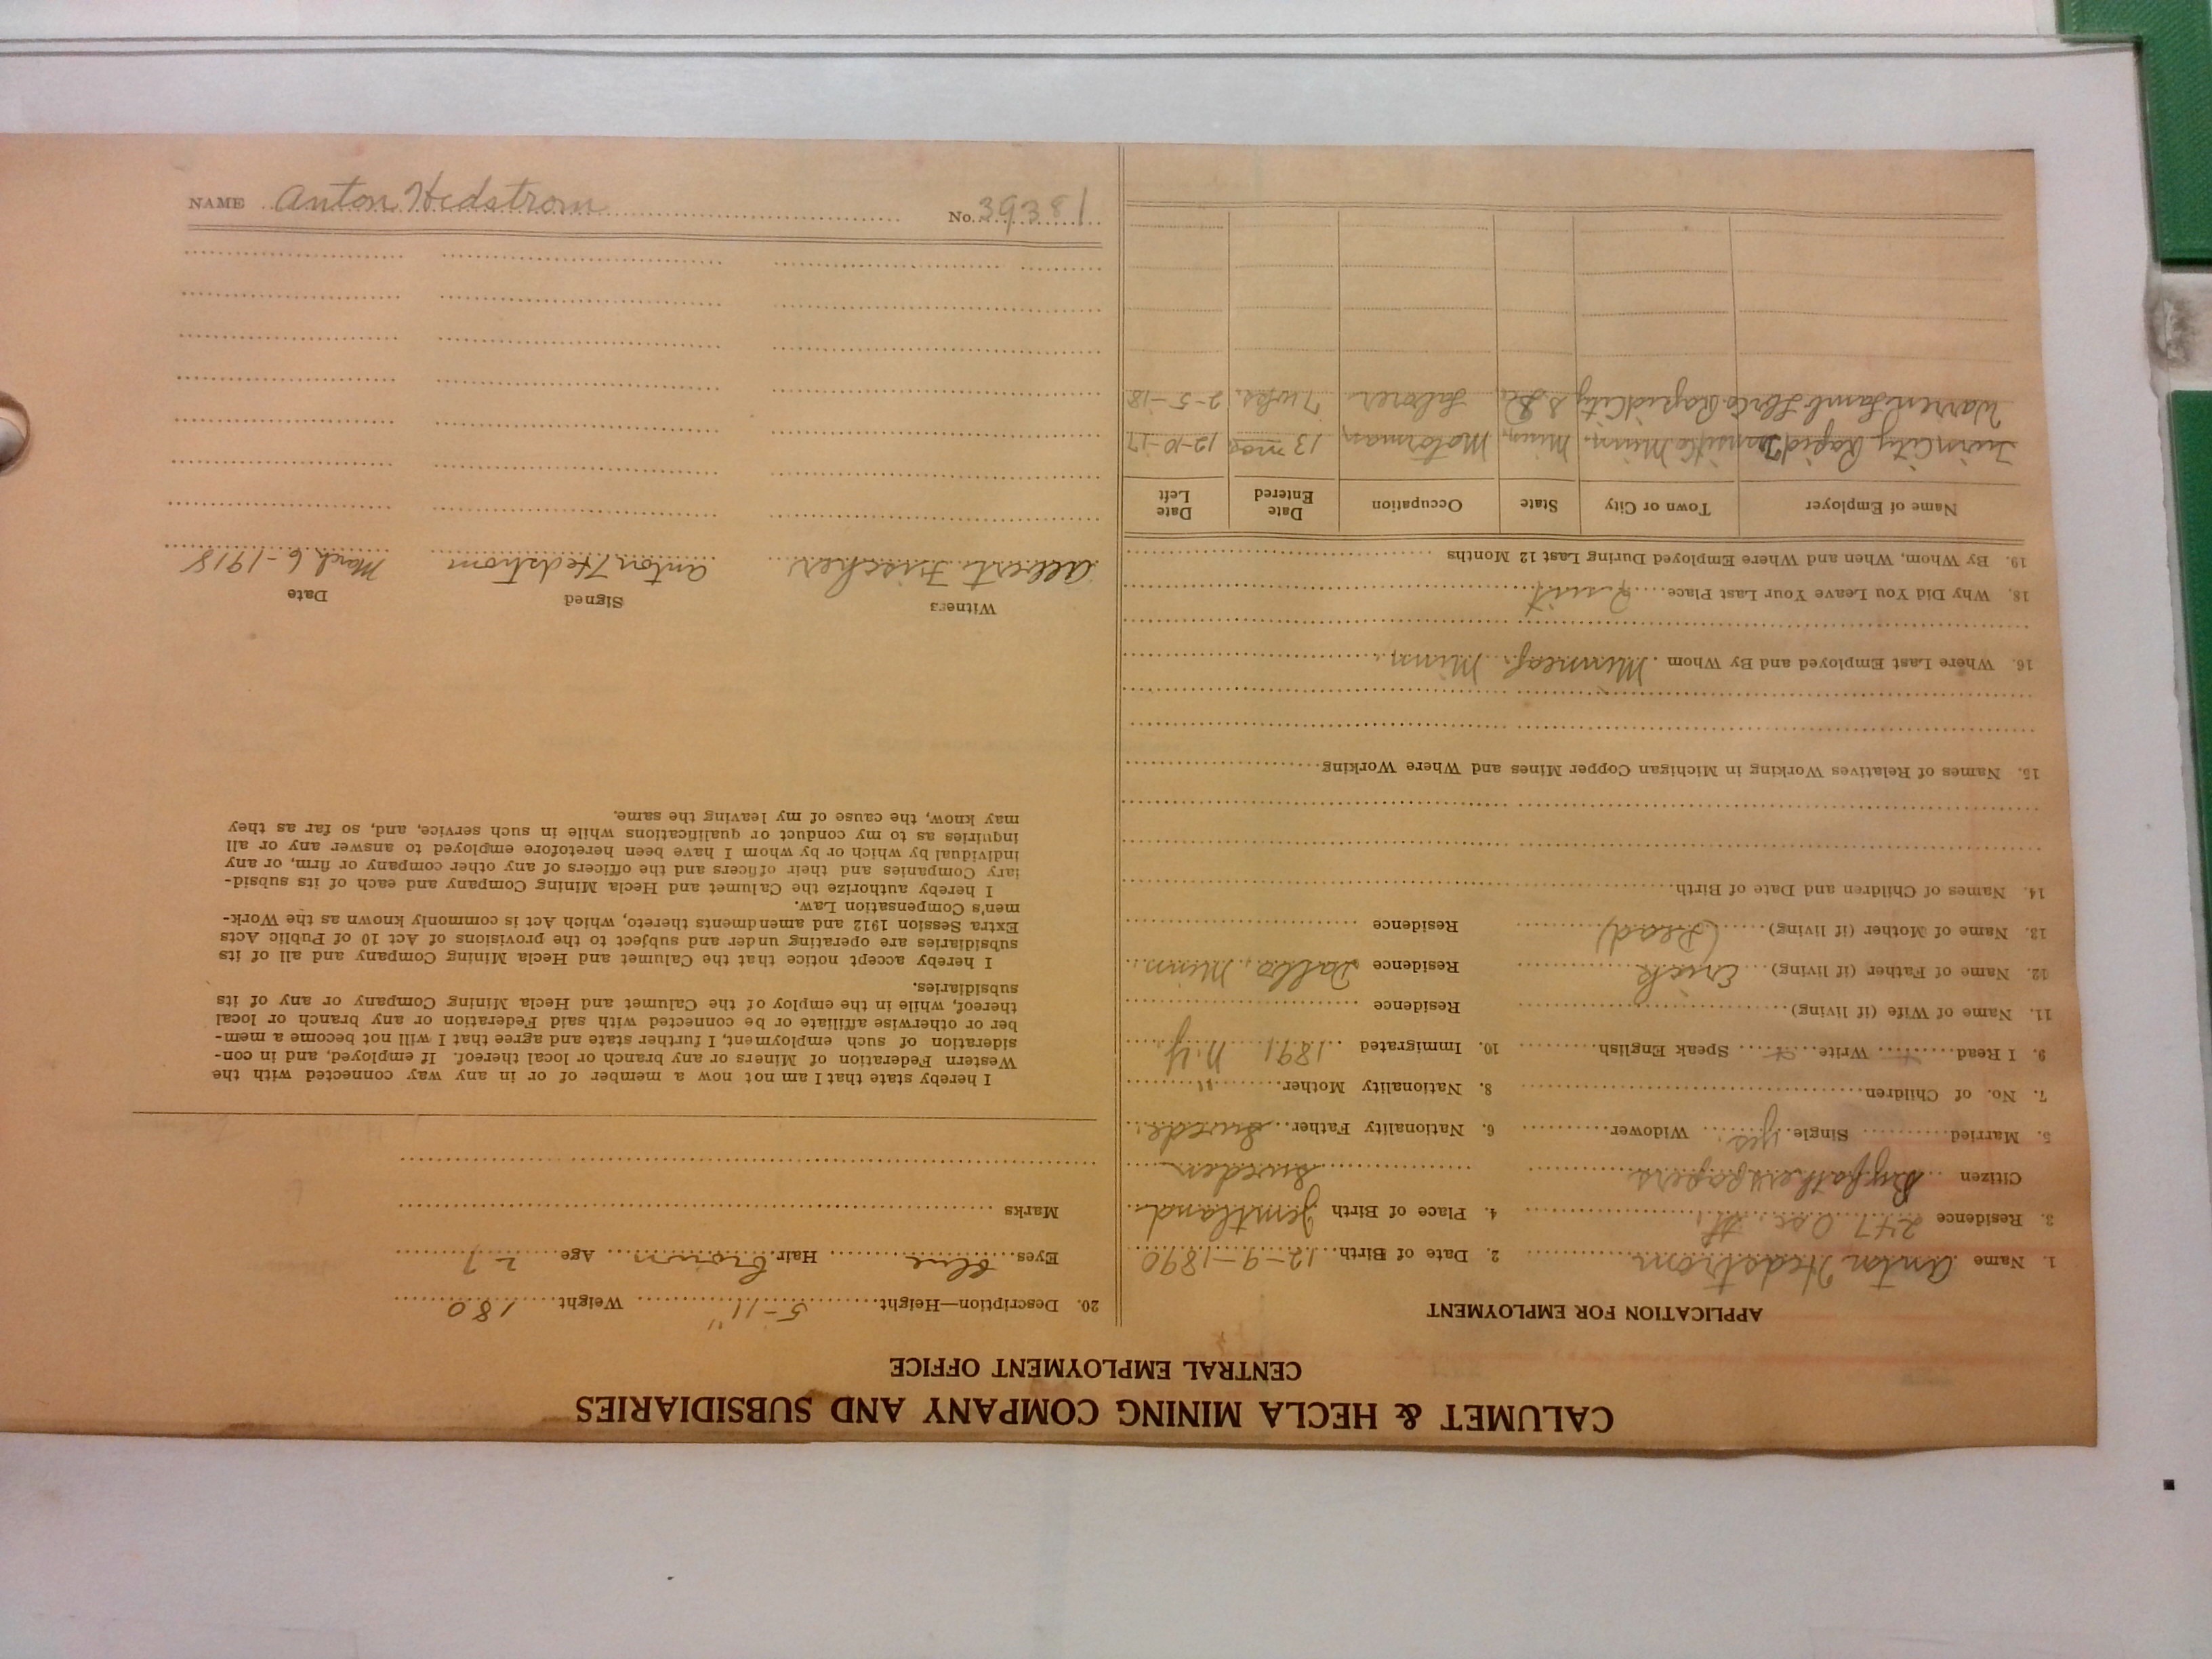 CALUMET & HECLA MINING COMPANY AND SUBSIDIARIES
CENTRAL EMPLOYMENT OFFICE
APPLICATION FOR EMPLOYMENT
1. Name Anton Hedstrom 2. Date of Birth 12-9-1890
3. Residence 247 Osc. St. 4. Place of Birth Jemtland
Citizen By fathers papers Sweden
5. Married Single yes. Widower 6. Nationality Father Swede.
7. No. of Children 8. Nationality Mother "
9. I Read Write Speak English 10. Immigrated 1891 N.Y.
11. Name of Wife (if living) Residence
12. Name of Father (if living) Erick Residence Dalbo, Minn.
13. Name of Mother (if living) (Dead) Residence
14. Names of Children and Date of Birth
15. Names of Relatives Working in Michigan Copper Mines and Where Working
16. Where Last Employed and By Whom Minneap. Minn.
18. Why Did You Leave Your Last Place Quit
19. By Whom, When and Where Employed During Last 12 Months
Name of Employer Town or City State Occupation Date Entered Date Left
Twin City Rapid Transit Co Minn. Minn. Motorman 13 mos 12-10-17
Warren Lamb Rapid City S.D. Laborer 7 wks. 2-5-18
20. Description—Height 5-11" Weight 180
Eyes Blue Hair Brown Age 27
Marks
I hereby state that I am not now a member of or in any way connected with the
Western Federation of Miners or any branch or local thereof. If employed, and in con-
sideration of such employment, I further state and agree that I will not become a mem-
ber or otherwise affiliate or be connected with said Federation or any branch or local
thereof, while in the employ of the Calumet and Hecla Mining Company or any of its
subsidiaries.
I hereby accept notice that the Calumet and Hecla Mining Company and all of its
subsidiaries are operating under and subject to the provisions of Act 10 of Public Acts
Extra Session 1912 and amendments thereto, which Act is commonly known as the Work-
men's Compensation Law.
I hereby authorize the Calumet and Hecla Mining Company and each of its subsid-
iary Companies and their officers and the officers of any other company or firm, or any
individual by which or by whom I have been heretofore employed to answer any or all
inquiries as to my conduct or qualifications while in such service, and, so far as they
may know, the cause of my leaving the same.
Witness Signed Date
Albert Fischer Anton Hedstrom March 6-1918
NAME Anton Hedstrom No. 39381